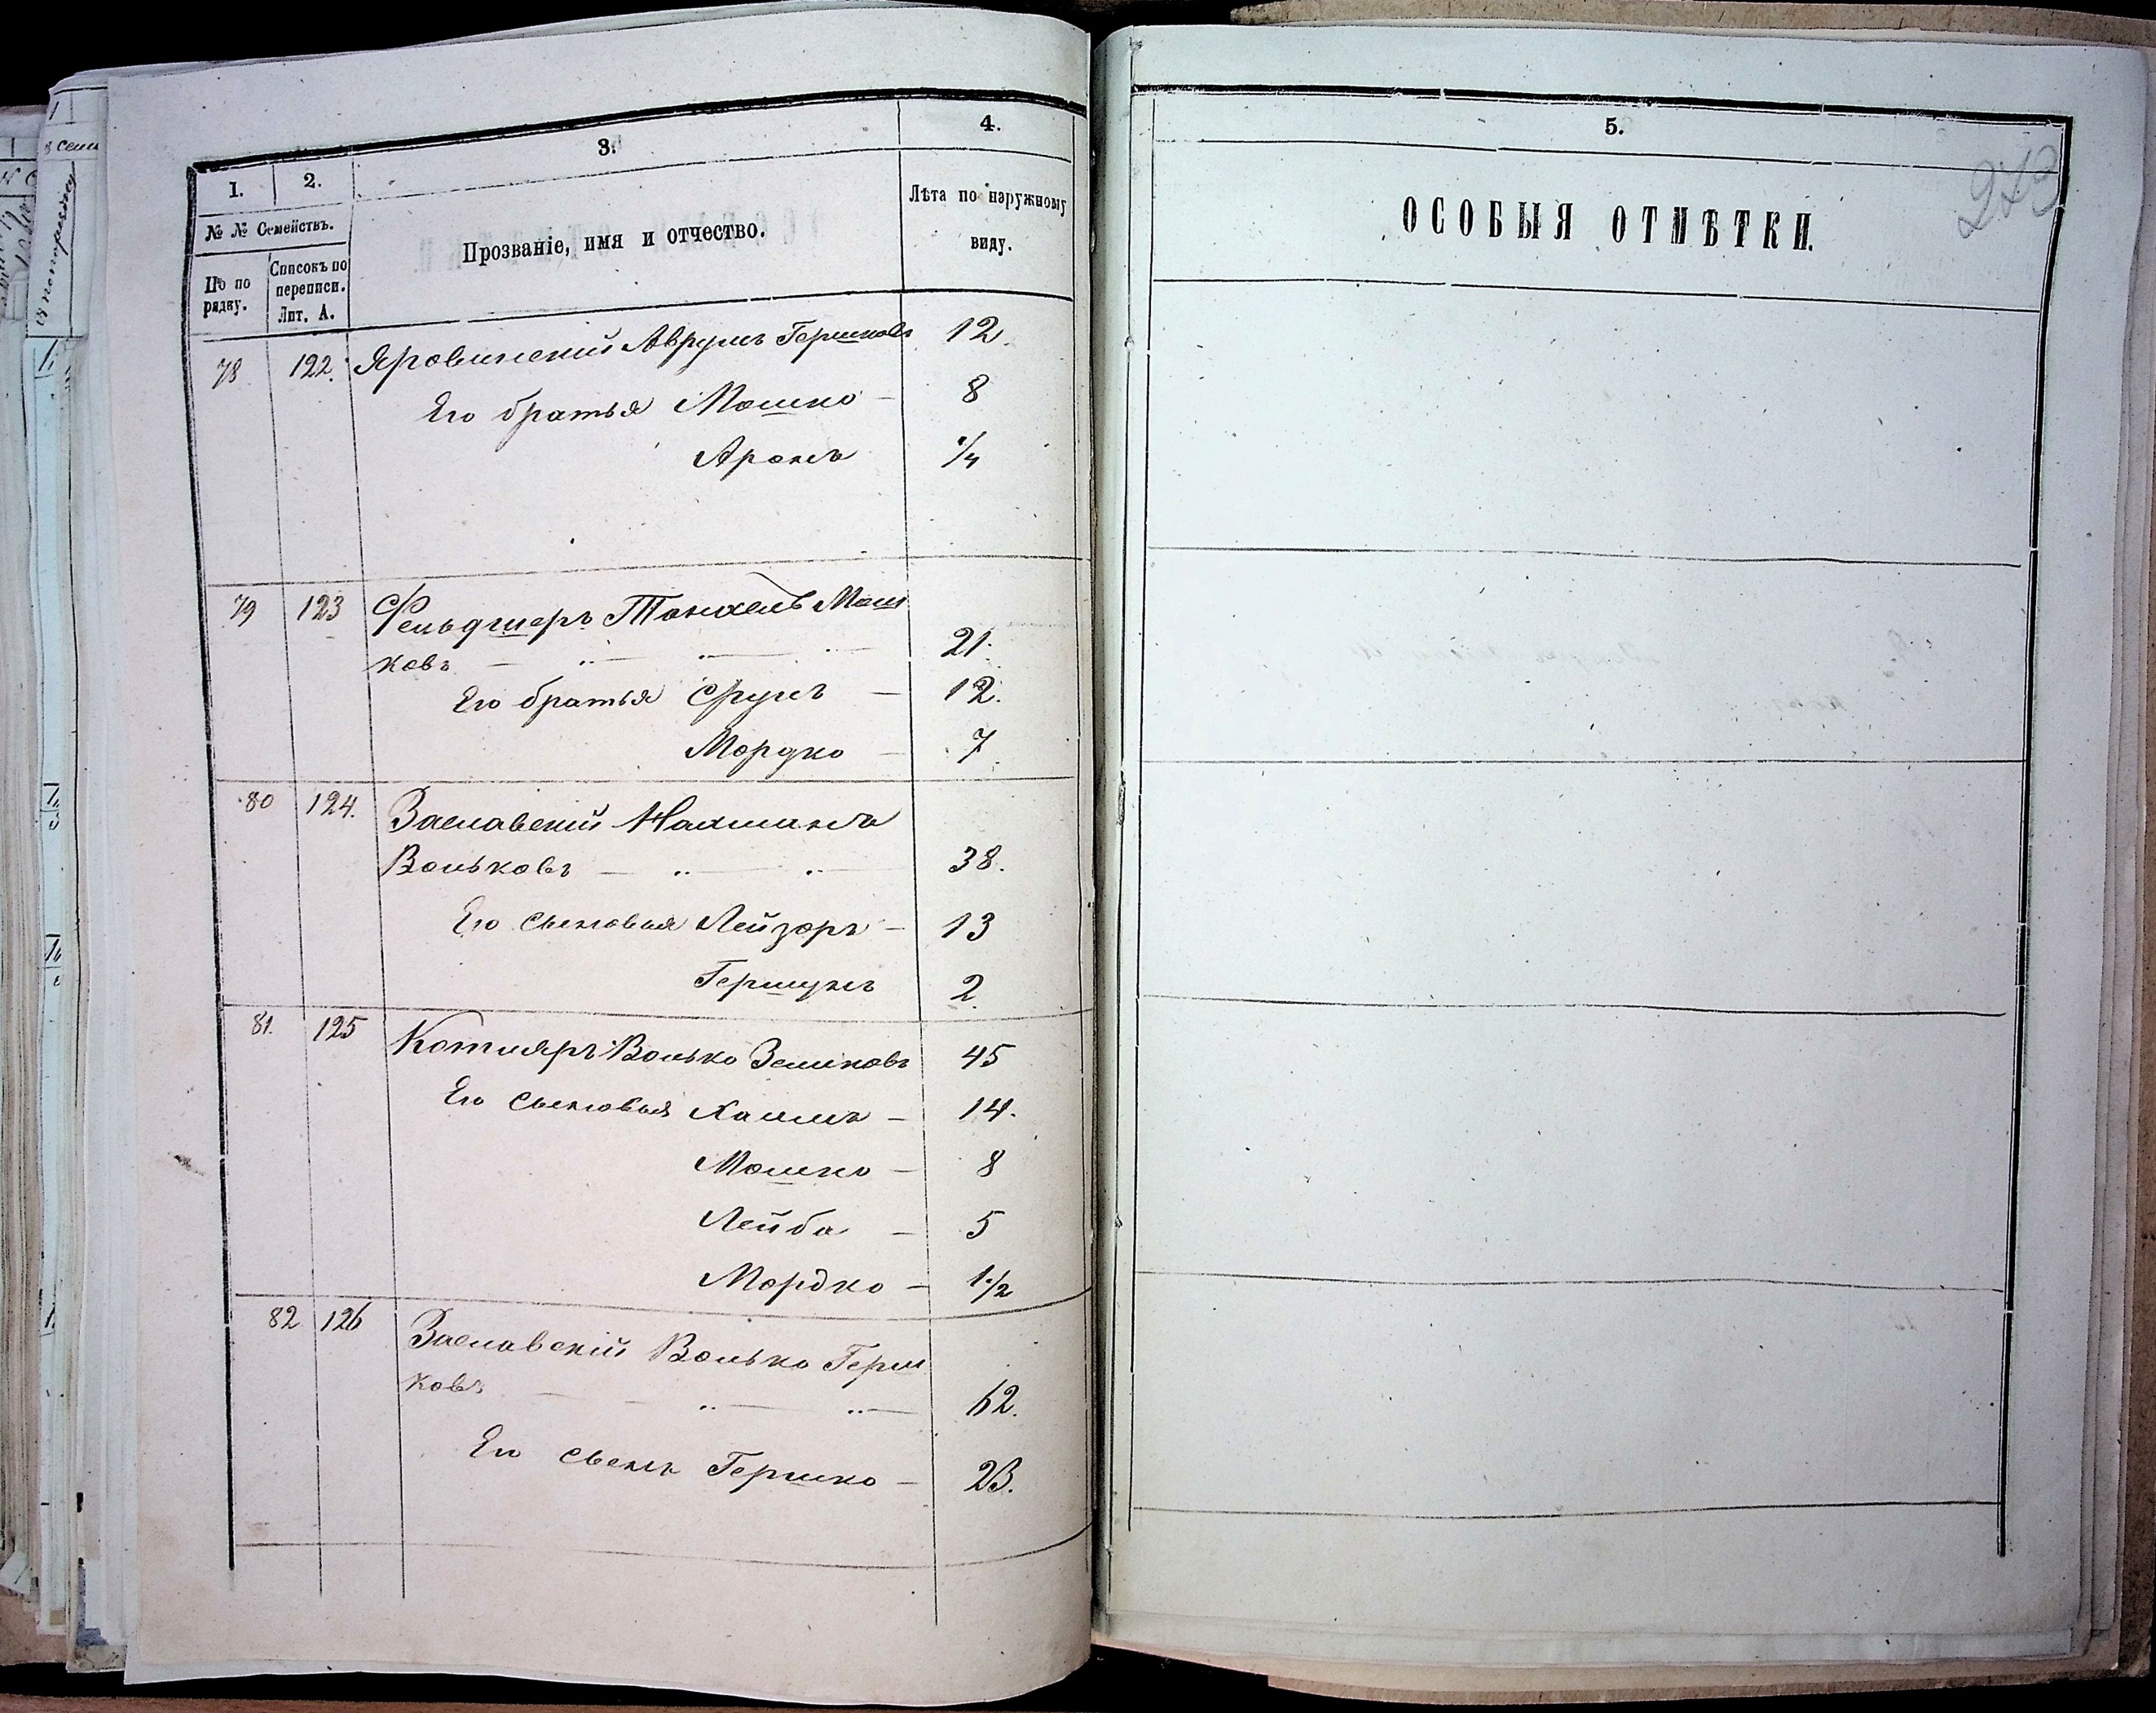 1.
2.
3.
4.
№ № Семействъ.
По по рядку.
Списокъ по переписи. Лит. А.
Прозваніе, имя и отчество.
Лѣта по наружному виду.
78 122. Яровинскій Аврумъ Гершковъ 12.
Его братья Мошко — 8
Аронъ 1/4
79 123 Фельдшеръ Танхель Мош
ковъ — 21.
Его братья Срулъ — 12.
Мордко — 7
80 124. Заславскій Нахманъ
Вольковъ — 38.
Его сыновья Лейзоръ — 13
Гершунъ 2.
81. 125 Котляръ Волько Зеликовъ 45
Его сыновья Хаимъ — 14.
Мошко — 8
Лейба — 5
Мордко — 1 1/2
82 126 Заславскій Волько Герш
ковъ — 62.
Его сынъ Гершко — 23.
5.
ОСОБЫЯ ОТМѢТКИ.
273